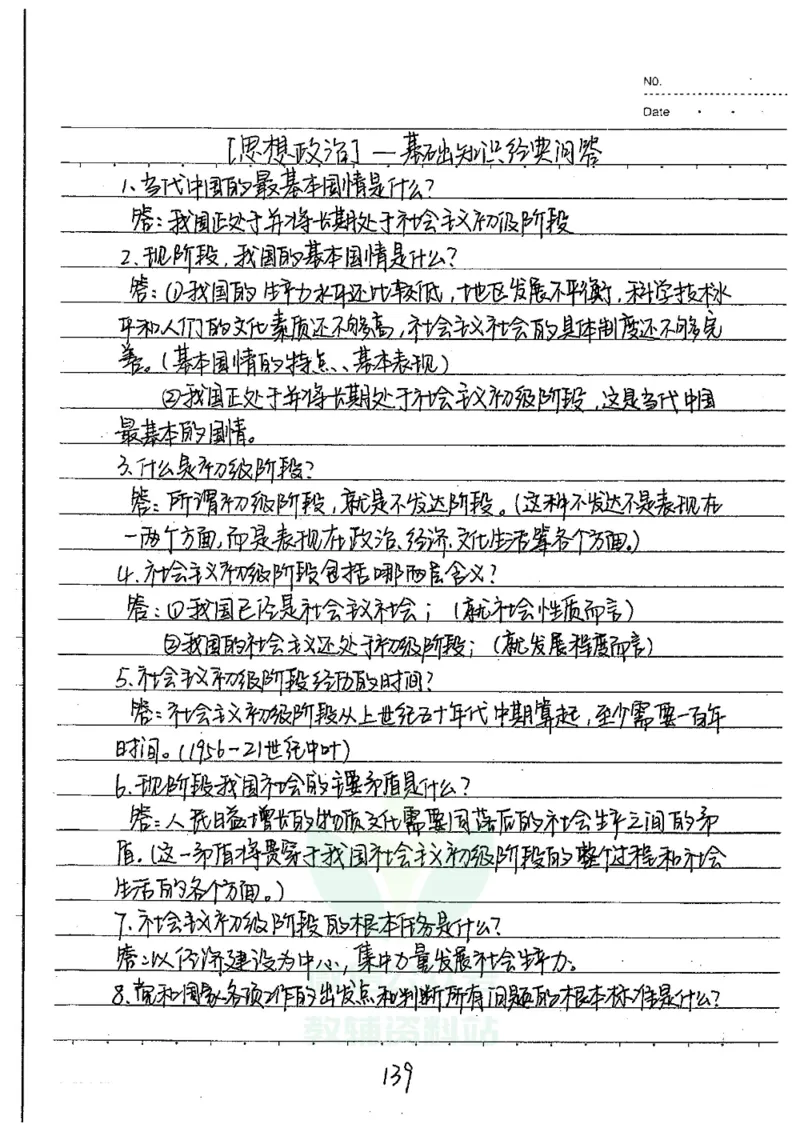 NO.
Date
[思想政治]—基础知识经典问答
1、当代中国的最基本国情是什么?
答:我国正处于并将长期处于社会主义初级阶段
2、现阶段,我国的基本国情是什么?
答:①我国的生产力水平还比较低,地区发展不平衡,科学技术水
平和人们的文化素质还不够高,社会主义社会的具体制度还不够完
善。(基本国情的特点、、基本表现)
②我国正处于并将长期处于社会主义初级阶段,这是当代中国
最基本的国情。
3、什么是初级阶段?
答:所谓初级阶段,就是不发达阶段。(这种不发达不是表现在
一两个方面,而是表现在政治、经济、文化生活等各个方面。)
4、社会主义初级阶段包括哪两层含义?
答:①我国已经是社会主义社会;(就社会性质而言)
②我国的社会主义还处于初级阶段;(就发展程度而言)
5、社会主义初级阶段经历的时间?
答:社会主义初级阶段从上世纪五十年代中期算起,至少需要一百年
时间。(1956—21世纪中叶)
6、现阶段我国社会的主要矛盾是什么?
答:人民日益增长的物质文化需要同落后的社会生产之间的矛
盾。(这一矛盾将贯穿于我国社会主义初级阶段的整个过程和社会
生活的各个方面。)
7、社会主义初级阶段的根本任务是什么?
答:以经济建设为中心,集中力量发展社会生产力。
8、党和国家各项工作的出发点和判断所有问题的根本标准是什么?
教辅资料站
139